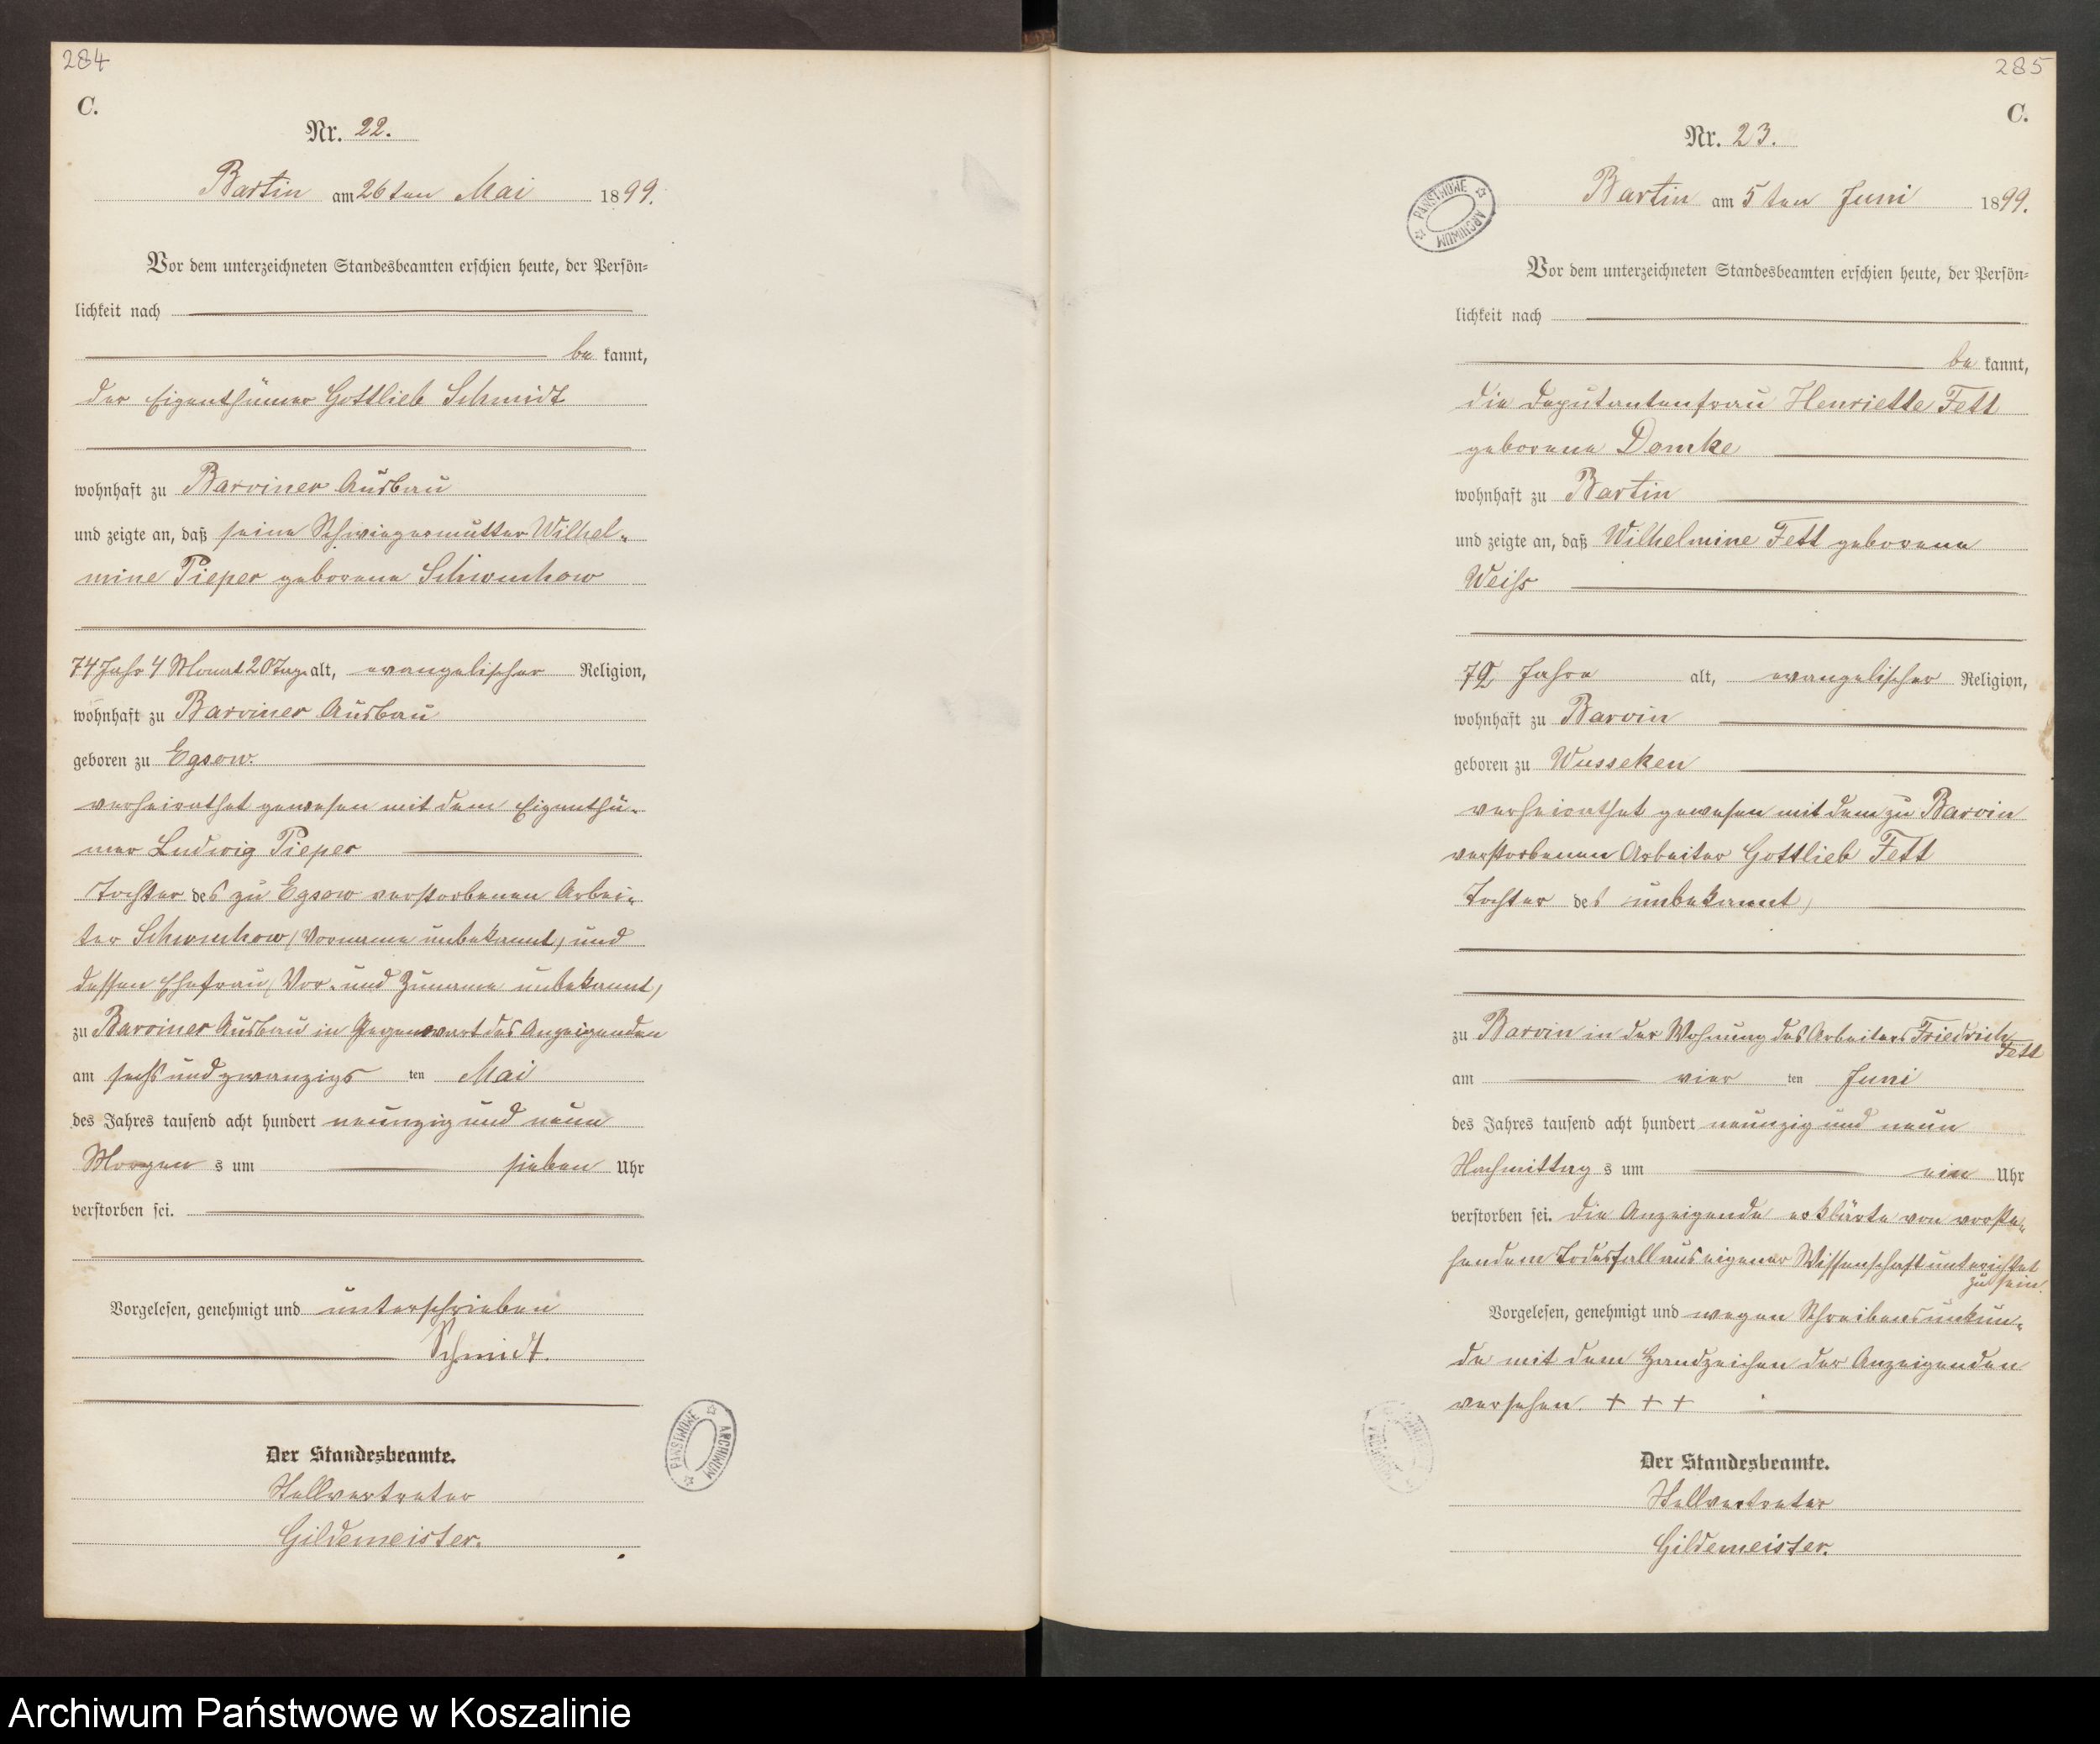 284
C.
Nr. 22.
Bartin am 26ten Mai 1899.
Vor dem unterzeichneten Standesbeamten erschien heute, der Persön=
lichkeit nach
be kannt,
der Eigenthümer Gottlieb Schmidt
wohnhaft zu Barviner Ausbau
und zeigte an, daß seine Schwiegermutter Wilhel-
mine Pieper geborene Schwuchow
74 Jahr 4 Monat 20 Tage alt, evangelischer Religion,
wohnhaft zu Barviner Ausbau
geboren zu Egsow.
verheirathet gewesen mit dem Eigenthü-
mer Ludwig Pieper
Tochter des zu Egsow verstorbenen Arbei-
ter Schwuchow (Vorname unbekannt) und
dessen Ehefrau (Vor- und Zuname unbekannt)
zu Barviner Ausbau in Gegenwart des Anzeigenden
am sechs und zwanzigs ten Mai
des Jahres tausend acht hundert neunzig und neun
Morgen s um sieben Uhr
verstorben sei.
Vorgelesen, genehmigt und unterschrieben
Schmidt.
Der Standesbeamte.
Stellvertreter
Gildemeister.
PAŃSTWOWE ARCHIWUM
285
C.
Nr. 23.
PAŃSTWOWE ARCHIWUM
Bartin am 5ten Juni 1899.
Vor dem unterzeichneten Standesbeamten erschien heute, der Persön=
lichkeit nach
be kannt,
die Deputantenfrau Henriette Fett
geborene Domke
wohnhaft zu Bartin
und zeigte an, daß Wilhelmine Fett geborene
Weiss
79 Jahre alt, evangelischer Religion,
wohnhaft zu Barvin
geboren zu Wusseken
verheirathet gewesen mit dem zu Barvin
verstorbenen Arbeiter Gottlieb Fett
Tochter des unbekannt)
zu Barvin in der Wohnung des Arbeiters Friedrich
Fett
am vier ten Juni
des Jahres tausend acht hundert neunzig und neun
Nachmittag s um ein Uhr
verstorben sei. Die Anzeigende erklärte von vorste-
hendem Todesfall aus eigener Wissenschaft unterrichtet
zu sein.
Vorgelesen, genehmigt und wegen Schreibensunkun-
de mit dem Handzeichen der Anzeigenden
versehen. + + +
Der Standesbeamte.
Stellvertreter
Gildemeister.
Archiwum Państwowe w Koszalinie